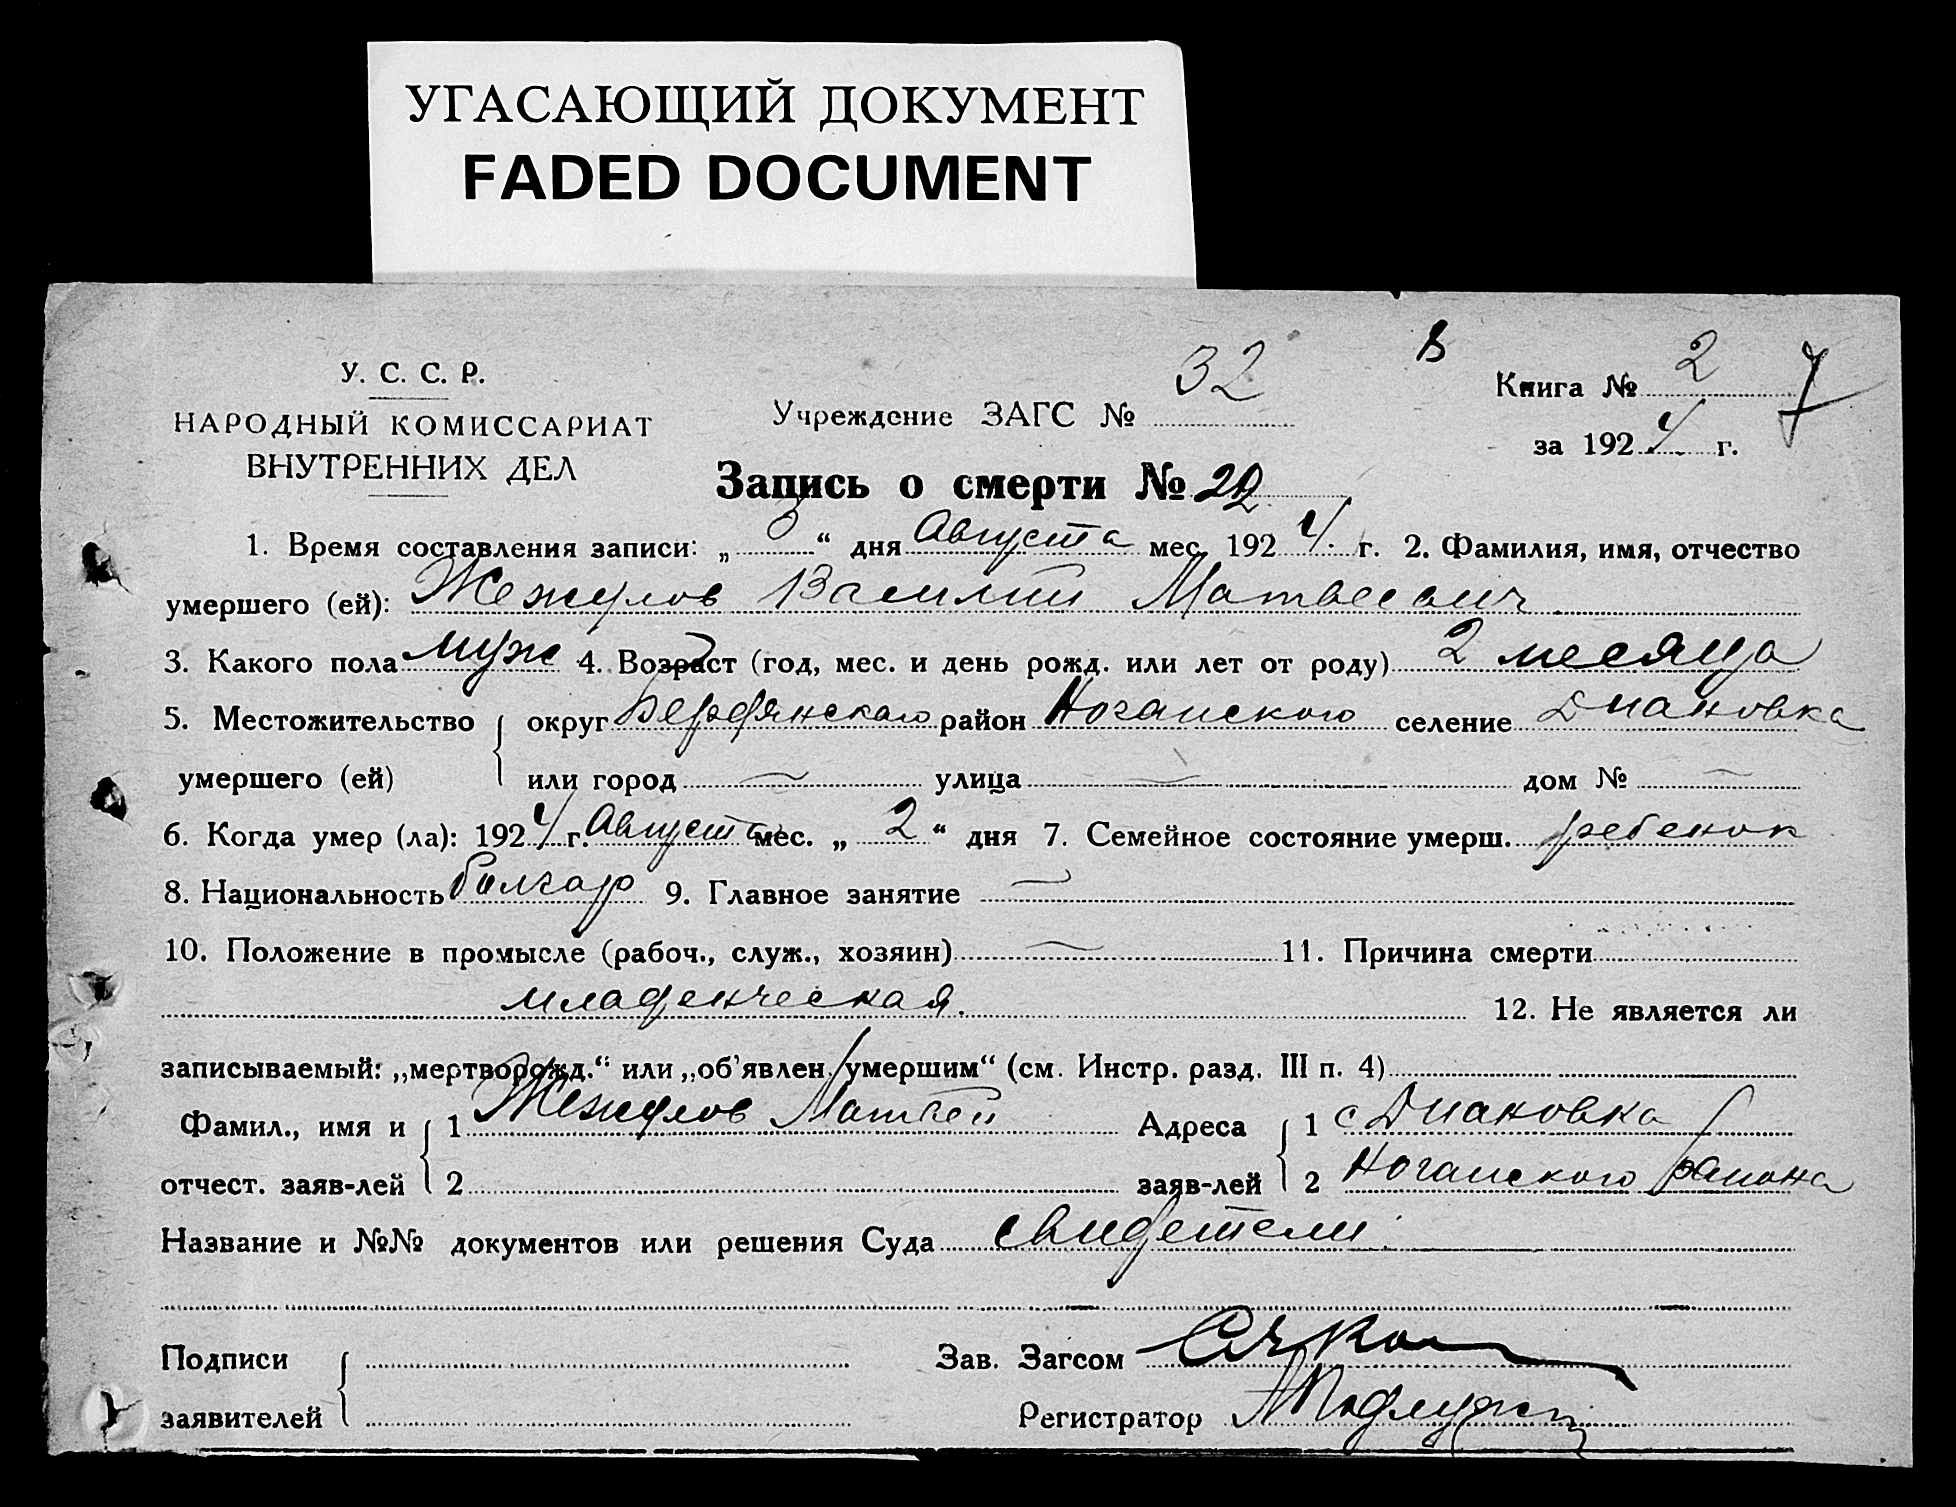 УГАСАЮЩИЙ ДОКУМЕНТ
FADED DOCUMENT
У. С. С. Р.
НАРОДНЫЙ КОМИССАРИАТ
ВНУТРЕННИХ ДЕЛ
Учреждение ЗАГС № 32
в
Книга № 2
7
за 1924 г.
Запись о смерти № 22
1. Время составления записи: „ 3 “ дня Августа мес. 1924 г. 2. Фамилия, имя, отчество
умершего (ей): Жежулов Василий Матвеевич
3. Какого пола муж 4. Возраст (год, мес. и день рожд. или лет от роду) 2 месяца
5. Местожительство { округ Бердянского район Ногайского селение Диановка
умершего (ей) или город — улица — дом № —
6. Когда умер (ла): 1924 г. Августа мес. „ 2 “ дня 7. Семейное состояние умерш. ребенок
8. Национальность болгар 9. Главное занятие —
10. Положение в промысле (рабоч., служ., хозяин) — 11. Причина смерти
младенческая. 12. Не является ли
записываемый: „мертворожд.“ или „об'явлен. умершим“ (см. Инстр. разд. III п. 4)
Фамил., имя и { 1 Жежулов Матвей Адреса { 1 с Диановка
отчест. заяв-лей 2 заяв-лей 2 Ногайского района
Название и №№ документов или решения Суда свидетели
Подписи Зав. Загсом
заявителей Регистратор